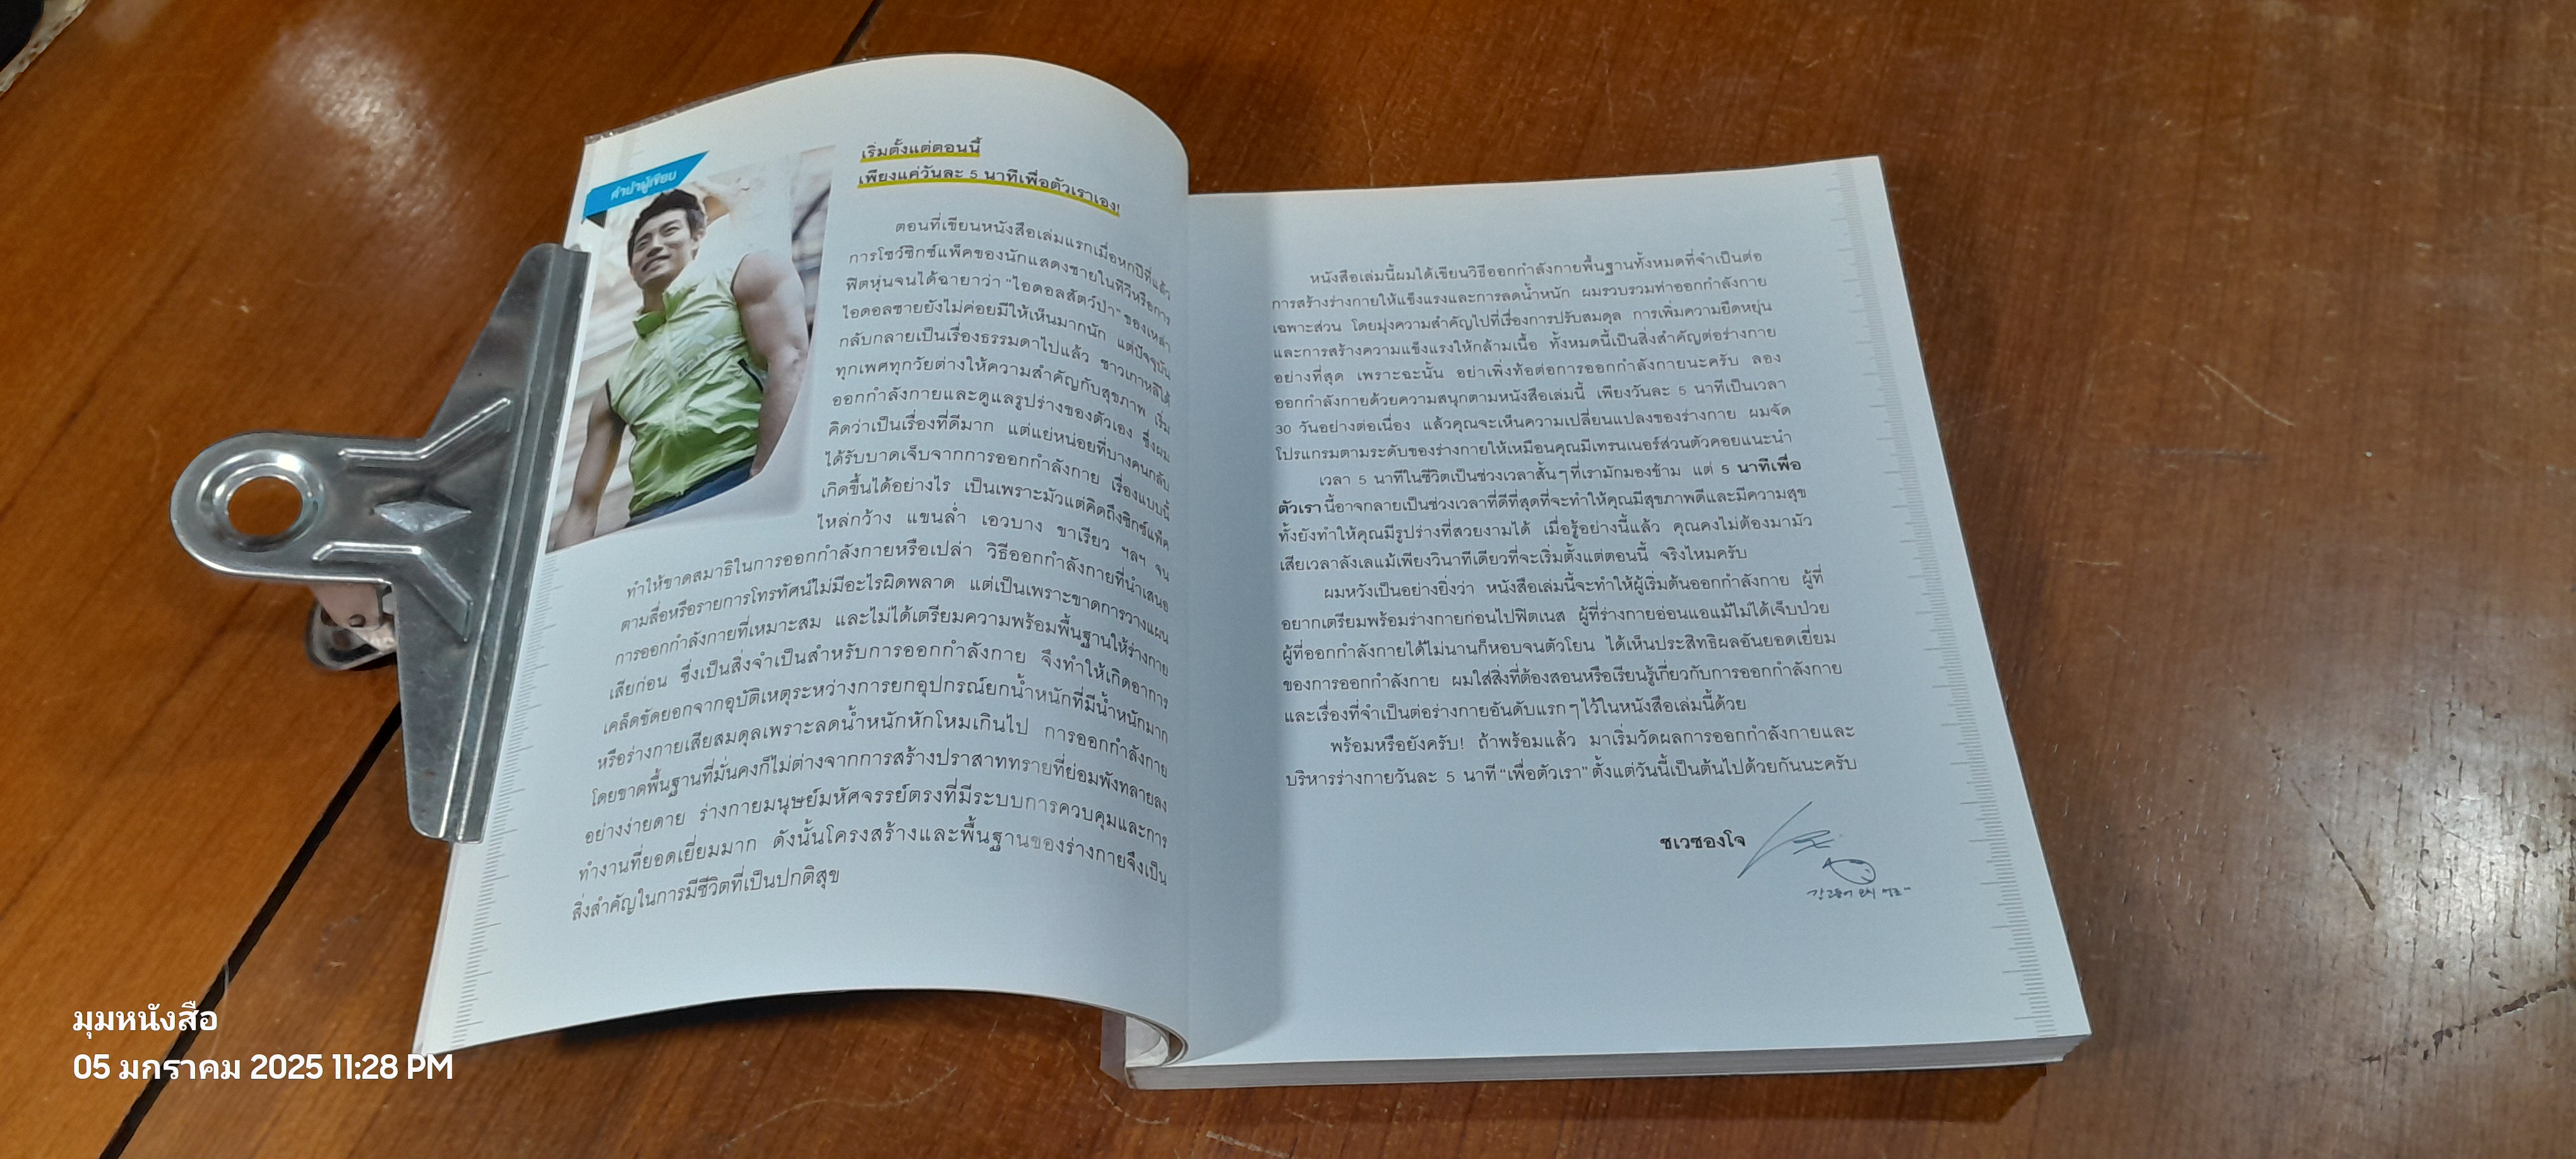 คำนำผู้เขียน
เริ่มตั้งแต่ตอนนี้
เพียงแค่วันละ 5 นาทีเพื่อตัวเราเอง!
ตอนที่เขียนหนังสือเล่มแรกเมื่อหกปีที่แล้ว
การโชว์ซิกซ์แพ็คของนักแสดงชายในทีวีหรือการ
ฟิตหุ่นจนได้ฉายาว่า "ไอดอลสัตว์ป่า" ของเหล่า
ไอดอลชายยังไม่ค่อยมีให้เห็นมากนัก แต่ปัจจุบัน
กลับกลายเป็นเรื่องธรรมดาไปแล้ว ชาวเกาหลีใต้
ทุกเพศทุกวัยต่างให้ความสำคัญกับสุขภาพ เริ่ม
ออกกำลังกายและดูแลรูปร่างของตัวเอง ซึ่งผม
คิดว่าเป็นเรื่องที่ดีมาก แต่แย่หน่อยที่บางคนกลับ
ได้รับบาดเจ็บจากการออกกำลังกาย เรื่องแบบนี้
เกิดขึ้นได้อย่างไร เป็นเพราะมัวแต่คิดถึงซิกซ์แพ็ค
ไหล่กว้าง แขนล่ำ เอวบาง ขาเรียว ฯลฯ จน
ทำให้ขาดสมาธิในการออกกำลังกายหรือเปล่า วิธีออกกำลังกายที่นำเสนอ
ตามสื่อหรือรายการโทรทัศน์ไม่มีอะไรผิดพลาด แต่เป็นเพราะขาดการวางแผน
การออกกำลังกายที่เหมาะสม และไม่ได้เตรียมความพร้อมพื้นฐานให้ร่างกาย
เสียก่อน ซึ่งเป็นสิ่งจำเป็นสำหรับการออกกำลังกาย จึงทำให้เกิดอาการ
เคล็ดขัดยอกจากอุบัติเหตุระหว่างการยกอุปกรณ์ยกน้ำหนักที่มีน้ำหนักมาก
หรือร่างกายเสียสมดุลเพราะลดน้ำหนักหักโหมเกินไป การออกกำลังกาย
โดยขาดพื้นฐานที่มั่นคงก็ไม่ต่างจากการสร้างปราสาททรายที่ย่อมพังทลายลง
อย่างง่ายดาย ร่างกายมนุษย์มหัศจรรย์ตรงที่มีระบบการควบคุมและการ
ทำงานที่ยอดเยี่ยมมาก ดังนั้นโครงสร้างและพื้นฐานของร่างกายจึงเป็น
สิ่งสำคัญในการมีชีวิตที่เป็นปกติสุข
หนังสือเล่มนี้ผมได้เขียนวิธีออกกำลังกายพื้นฐานทั้งหมดที่จำเป็นต่อ
การสร้างร่างกายให้แข็งแรงและการลดน้ำหนัก ผมรวบรวมท่าออกกำลังกาย
เฉพาะส่วน โดยมุ่งความสำคัญไปที่เรื่องการปรับสมดุล การเพิ่มความยืดหยุ่น
และการสร้างความแข็งแรงให้กล้ามเนื้อ ทั้งหมดนี้เป็นสิ่งสำคัญต่อร่างกาย
อย่างที่สุด เพราะฉะนั้น อย่าเพิ่งท้อต่อการออกกำลังกายนะครับ ลอง
ออกกำลังกายด้วยความสนุกตามหนังสือเล่มนี้ เพียงวันละ 5 นาทีเป็นเวลา
30 วันอย่างต่อเนื่อง แล้วคุณจะเห็นความเปลี่ยนแปลงของร่างกาย ผมจัด
โปรแกรมตามระดับของร่างกายให้เหมือนคุณมีเทรนเนอร์ส่วนตัวคอยแนะนำ
เวลา 5 นาทีในชีวิตเป็นช่วงเวลาสั้นๆ ที่เรามักมองข้าม แต่ 5 นาทีเพื่อ
ตัวเรานี้อาจกลายเป็นช่วงเวลาที่ดีที่สุดที่จะทำให้คุณมีสุขภาพดีและมีความสุข
ทั้งยังทำให้คุณมีรูปร่างที่สวยงามได้ เมื่อรู้อย่างนี้แล้ว คุณคงไม่ต้องมามัว
เสียเวลาลังเลแม้เพียงวินาทีเดียวที่จะเริ่มตั้งแต่ตอนนี้ จริงไหมครับ
ผมหวังเป็นอย่างยิ่งว่า หนังสือเล่มนี้จะทำให้ผู้เริ่มต้นออกกำลังกาย ผู้ที่
อยากเตรียมพร้อมร่างกายก่อนไปฟิตเนส ผู้ที่ร่างกายอ่อนแอแม้ไม่ได้เจ็บป่วย
ผู้ที่ออกกำลังกายได้ไม่นานก็หอบจนตัวโยน ได้เห็นประสิทธิผลอันยอดเยี่ยม
ของการออกกำลังกาย ผมใส่สิ่งที่ต้องสอนหรือเรียนรู้เกี่ยวกับการออกกำลังกาย
และเรื่องที่จำเป็นต่อร่างกายอันดับแรกๆ ไว้ในหนังสือเล่มนี้ด้วย
พร้อมหรือยังครับ! ถ้าพร้อมแล้ว มาเริ่มวัดผลการออกกำลังกายและ
บริหารร่างกายวันละ 5 นาที "เพื่อตัวเรา" ตั้งแต่วันนี้เป็นต้นไปด้วยกันนะครับ
ชเวซองโจ
มุมหนังสือ
05 มกราคม 2025 11:28 PM